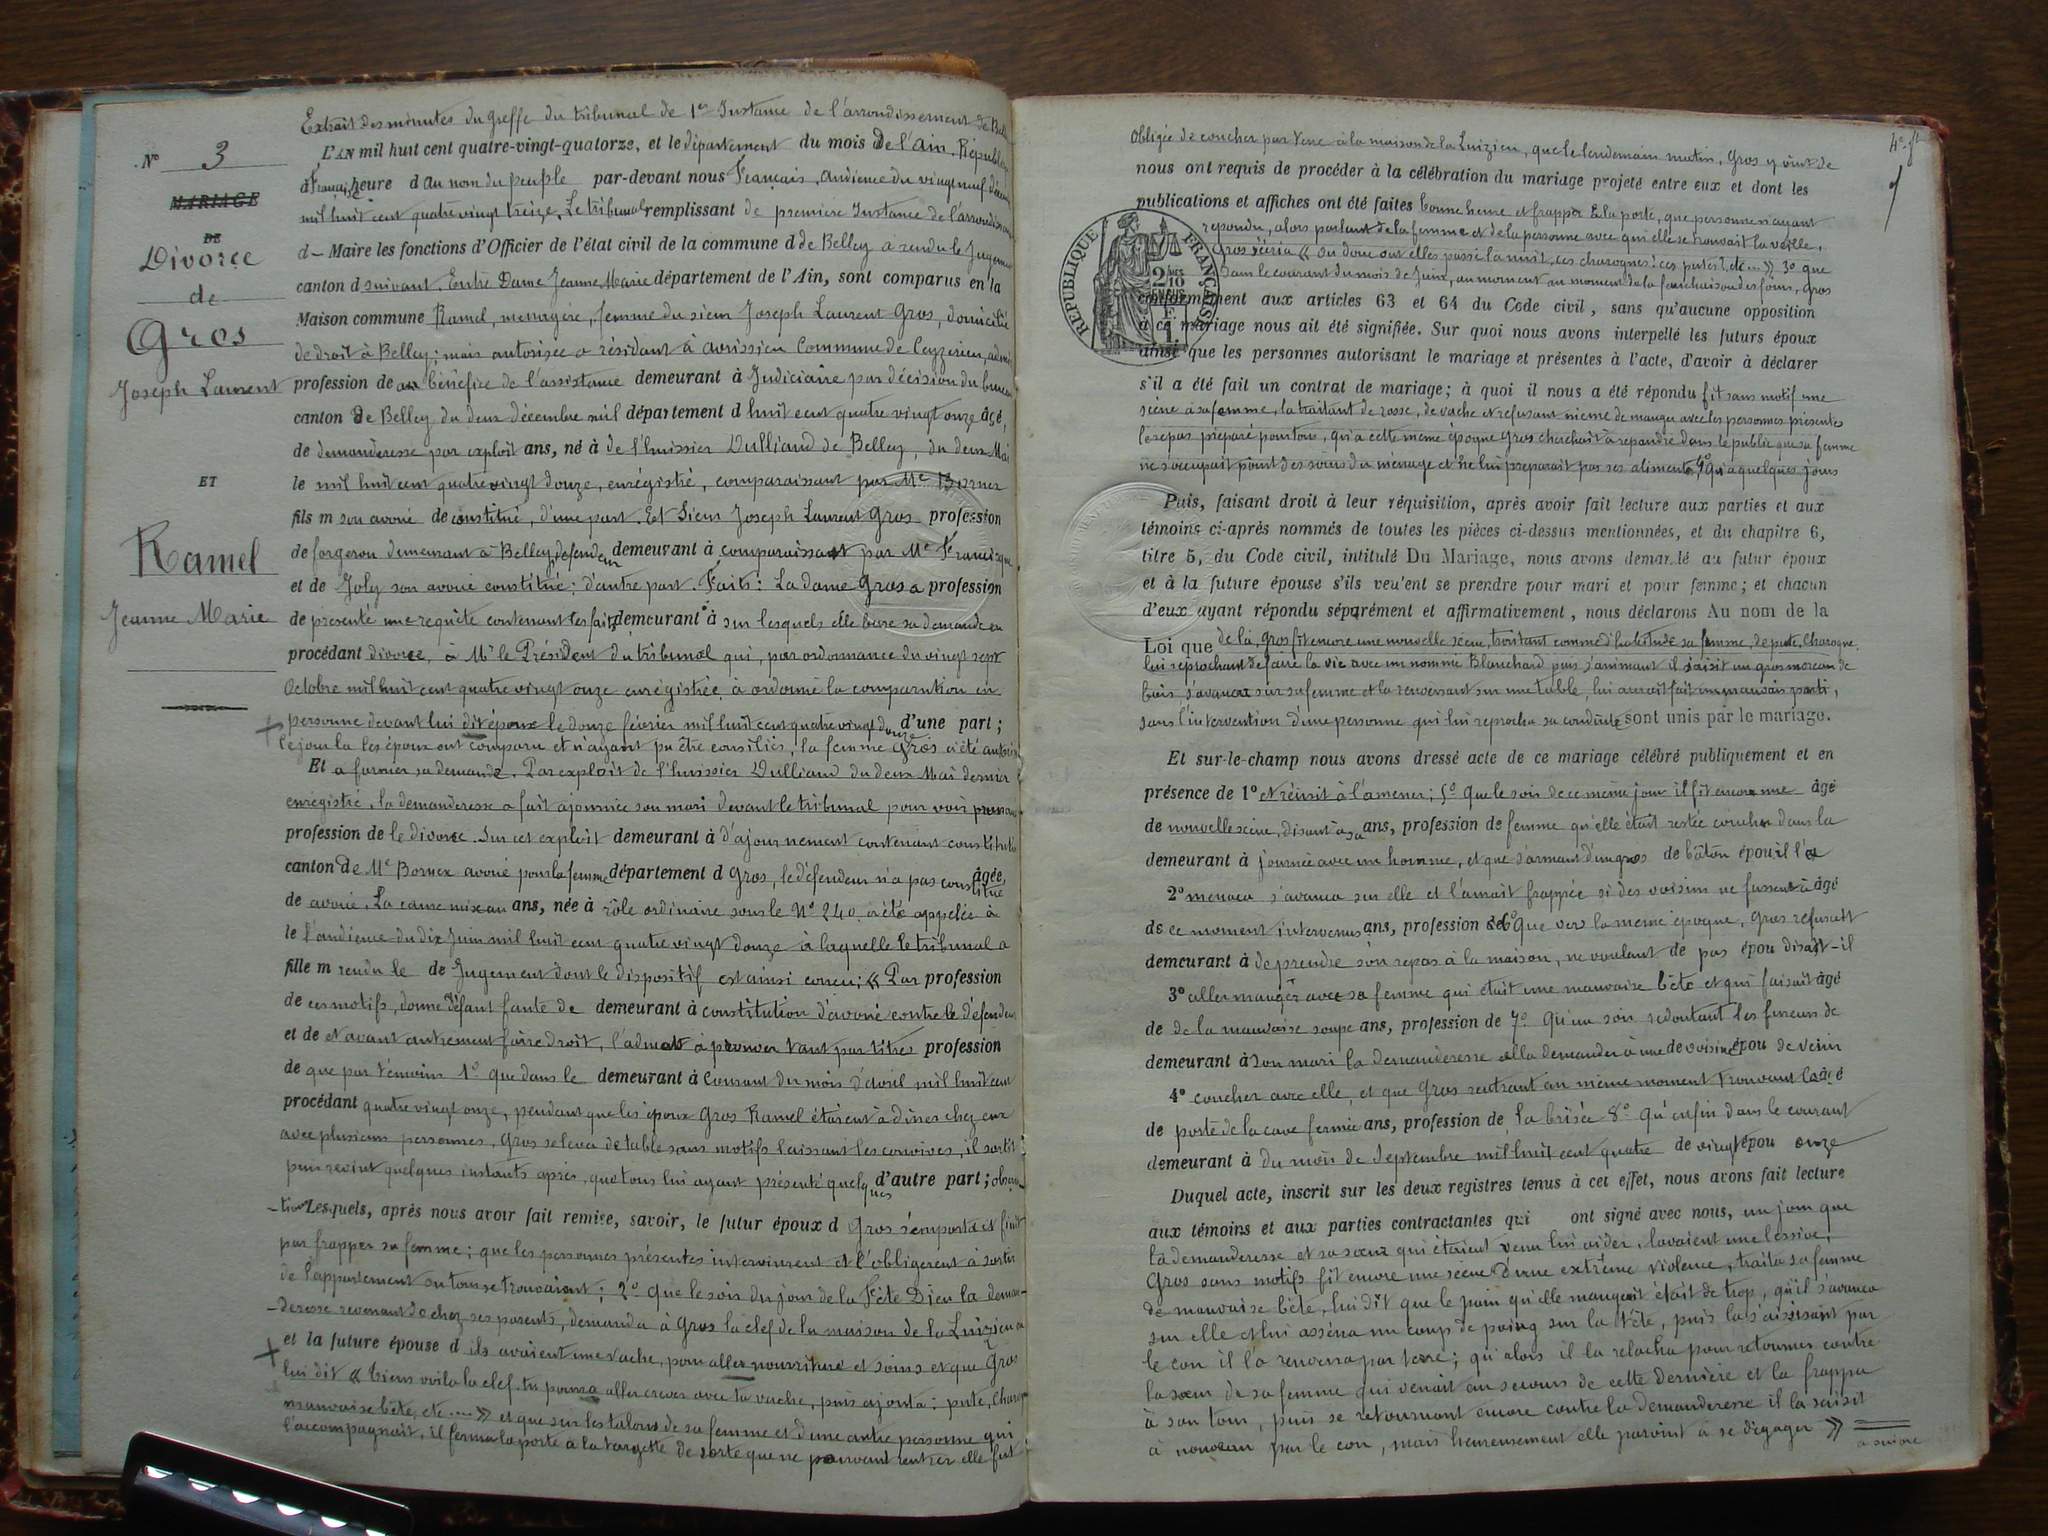 Extrait des minutes du Greffe du tribunal de 1ere Instance de l'arrondissement de Belley
N° 3
L'AN mil huit cent quatre-vingt-quatorze, et le département du mois de l'Ain. République
d Française heure d au nom du peuple par-devant nous Français, audience du vingt neuf décembre
MARIAGE
mil huit cent quatre vingt treize, Le tribunal remplissant de première Instance de l'arrondissement
DE
d— Maire les fonctions d'Officier de l'état civil de la commune d de Belley a rendu le Jugement
Divorce
canton d suivant. Entre Dame Jeanne Marie département de l'Ain, sont comparus en la
de
Maison commune Ramel, ménagère, femme du sieur Joseph Laurent Gros, domicilié
Gros
de droit à Belley; mais autorisée a résidant à Avrissieu Commune de Ceyzerieu, admise
Joseph Laurent
profession de au bénéfice de l'assistance demeurant à Judiciaire par décision du bureau
canton de Belley du deux décembre mil département d huit cent quatre vingt onze âgé,
de demanderesse par exploit ans, né à de l'huissier Dulliand de Belley, du deux Mai
ET
le mil huit cent quatre vingt douze, enrégistré, comparaissant par Me Bornex
fils m son avoué de constitué, d'une part. Et Sieur Joseph Laurent Gros profession
Ramel
de forgeron demeurant à Belley défendeur demeurant à comparaissant par Me Francisque
et de Joly son avoué constitué; d'autre part. Faits: La dame Gros a profession
Jeanne Marie
de présenté une requête contenant les faits demeurant à sur lesquels elle base sa demande en
procédant divorce, à Mr le Président du tribunal qui, par ordonnance du vingt sept
Octobre mil huit cent quatre vingt onze enrégistrée, a ordonné la comparution en
personne devant lui dit époux le douze février mil huit cent quatre vingt douze d'une part;
Ce jour là les époux ont comparu et n'ayant pu être conciliés, la femme Gros a été autorisée
Et a former sa demande. Par exploit de l'huissier Dulliand du deux Mai dernier
enrégistré, la demanderesse a fait ajournée son mari devant le tribunal pour voir prononcer
profession de le divorce. Sur cet exploit demeurant à d'ajournement contenant constitution
canton de Me Bornex avoué pour la femme département d Gros, le défendeur n'a pas constitué âgée,
de avoué. La cause mise au ans, née à rôle ordinaire sous le N° 240 a été appelée à
le l'audience du dix Juin mil huit cent quatre vingt douze à laquelle le tribunal a
fille m rendu le de Jugement dont le dispositif est ainsi concu; « Par profession
de ces motifs, donne défaut faute de demeurant à constitution d'avoué contre le défendeur
et de et avant autrement faire droit, l'admet à prouver tant par titres profession
de que par témoins 1° que dans le demeurant à Courant du mois d'Avril mil huit cent
procédant quatre vingt onze, pendant que les époux Gros Ramel étaient à diner chez eux
avec plusieurs personnes, Gros se leva de table sans motifs laissant les convives, il sortit
puis revint quelques instants après, que tous lui ayant présenté quelques d'autre part; observa
-tions Lesquels, après nous avoir fait remise, savoir, le futur époux d Gros s'emporta et finit
par frapper sa femme; que les personnes présentes intervinrent et l'obligèrent à sortir
de l'appartement ou tous se trouvaient; 2° Que le soir du jour de la Fête Dieu la deman-
-deresse revenant de chez ses parents, demanda à Gros la clef de la maison de la Luizieu
et la future épouse d ils avaient une vache, pour aller nourriture et soins et que Gros
lui dit « tiens voila la clef tu pourra aller crever avec ta vache, puis ajouta: pute, Charogne
mauvaise bête, etc.... » et que sur les talons de sa femme et d'une autre personne qui
l'accompagnait, il ferma la porte à la targette de sorte que ne pouvant rentrer elle fut
4e ft
Obligée de coucher par terre à la maison de la Luizieu, que le lendemain matin, Gros y vint de
nous ont requis de procéder à la célébration du mariage projeté entre eux et dont les
publications et affiches ont été faites bonne heure et frapper à la porte, que personne n'ayant
répondu, alors parlant de la femme et de la personne avec qui elle se trouvait la veille,
Gros s'écria « Ou donc ont elles passé la nuit, ces charognes! ces putes! etc... » 3° que
dans le courant du mois de Juin, au moment au moment de la fenaison des foins, Gros
RÉPUBLIQUE FRANÇAISE
conformément aux articles 63 et 64 du Code civil, sans qu'aucune opposition
à ce mariage nous ait été signifiée. Sur quoi nous avons interpellé les futurs époux
ainsi que les personnes autorisant le mariage et présentes à l'acte, d'avoir à déclarer
s'il a été fait un contrat de mariage; à quoi il nous a été répondu fit sans motif une
scène à sa femme, la traitant de rosse, de vache et refusant même de manger avec les personnes présentes
le repas préparé pour tous, qu'a cette même époque Gros cherchait à répandre dans le public que sa femme
ne s'occupait point des soins du ménage et ne lui préparait pas ses aliments, 4° Qu'a quelques jours
Puis, faisant droit à leur réquisition, après avoir fait lecture aux parties et aux
témoins ci-après nommés de toutes les pièces ci-dessus mentionnées, et du chapitre 6,
titre 5, du Code civil, intitulé Du Mariage, nous avons demandé au futur époux
et à la future épouse s'ils veulent se prendre pour mari et pour femme; et chacun
d'eux ayant répondu séparément et affirmativement, nous déclarons Au nom de la
Loi que de là, Gros fit encore une nouvelle scène, traitant comme d'habitude sa femme, de pute, Charogne,
lui reprochant de faire la vie avec un nommé Blanchard puis s'animant il saisit un gros morceau de
bois s'avancer sur sa femme et la renversant sur une table, lui aurait fait un mauvais parti,
sans l'intervention d'une personne qui lui reprocha sa conduite sont unis par le mariage.
Et sur-le-champ nous avons dressé acte de ce mariage célébré publiquement et en
présence de 1° et réussit à l'amener; 5° Que le soir de ce même jour il fit encore une âgé
de nouvelle scène, disant à sa ans, profession de femme qu'elle était restée coucher dans la
demeurant à journée avec un homme, et que s'armant d'un gros de bâton épou il l'a
2° menaca s'avanca sur elle et l'aurait frappée si des voisins ne fussent à âgé
de ce moment intervenus ans, profession de 6° Que vers la même époque, Gros refusait
demeurant à de prendre son repas à la maison, ne voulant de pas épou disait-il
3° aller manger avec sa femme qui était une mauvaise bête et qui faisait âgé
de de la mauvaise soupe ans, profession de 7° Qu'un soir redoutant les fureurs de
demeurant à son mari la demanderesse alla demander à une de voisine épou de venir
4° coucher avec elle, et que Gros rentrant au même moment trouvant la âgé
de porte de la cave fermée ans, profession de la brisée 8° Qu'enfin dans le courant
demeurant à du mois de Septembre mil huit cent quatre de vingt épou onze
Duquel acte, inscrit sur les deux registres tenus à cet effet, nous avons fait lecture
aux témoins et aux parties contractantes qui ont signé avec nous, un jour que
la demanderesse et sa sœur qui étaient venu lui aider, lavaient une lessive,
Gros sans motifs fit encore une scène d'une extrême violence, traita sa femme
de mauvaise bête, lui dit que le pain qu'elle mangeait était de trop, qu'il s'avança
sur elle et lui asséna un coup de poing sur la tête, puis la saisissant par
le cou il la renversa par terre; qu'alors il la relacha pour retourner contre
la sœur de sa femme qui venait au secours de cette dernière et la frappa
à son tour, puis se retournant encore contre la demanderesse il la saisit
à nouveau par le cou, mais heureusement elle parvint à se dégager »
a suivre